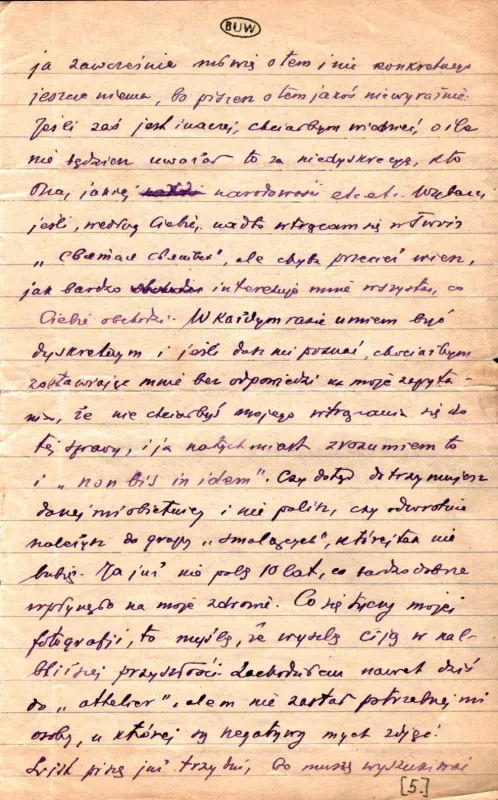 BUW
ja zawcześnie mówię o tem i nic konkretnego
jeszcze niema, bo piszesz o tem jakoś niewyraźnie.
Jeśli zaś jest inaczej, chciałbym wiedzieć, o ile
nie będziesz uważał to za niedyskrecję, kto
Ona, jakiej narodowości etc etc. Wybacz
jeśli, według Ciebie, nadto wtrącam się w Twoje
ale chyba przecież wiesz,
jak bardzo interesuje mnie wszystko, co
Ciebie obchodzi. W każdym razie umiem być
dyskretnym i jeśli dasz mi poznać, chociażbym
zostawiając mnie bez odpowiedzi na moje zapyta-
nia, że nie chciałbyś mojego wtrącania się do
tej sprawy, i ja natychmiast zrozumiem to
i „non bis in idem". Czy dotąd dotrzymujesz
danej mi obietnicy i nie palisz, czy odwrotnie
należysz do grupy „smalących", której tak nie
lubię. Ja już nie palę 10 lat, co bardzo dobrze
wpłynęło na moje zdrowie. Co się tyczy mojej
fotografji, to myślę, że wyślę Ci ją w naj-
bliższej przyszłości. Zachodziłem nawet dziś
do „athelier", alem nie zastał potrzebnej mi
osoby, u której są negatywy mych zdjęć.
List piszę już trzy dni, bo muszę wyszukiwać
[5.]